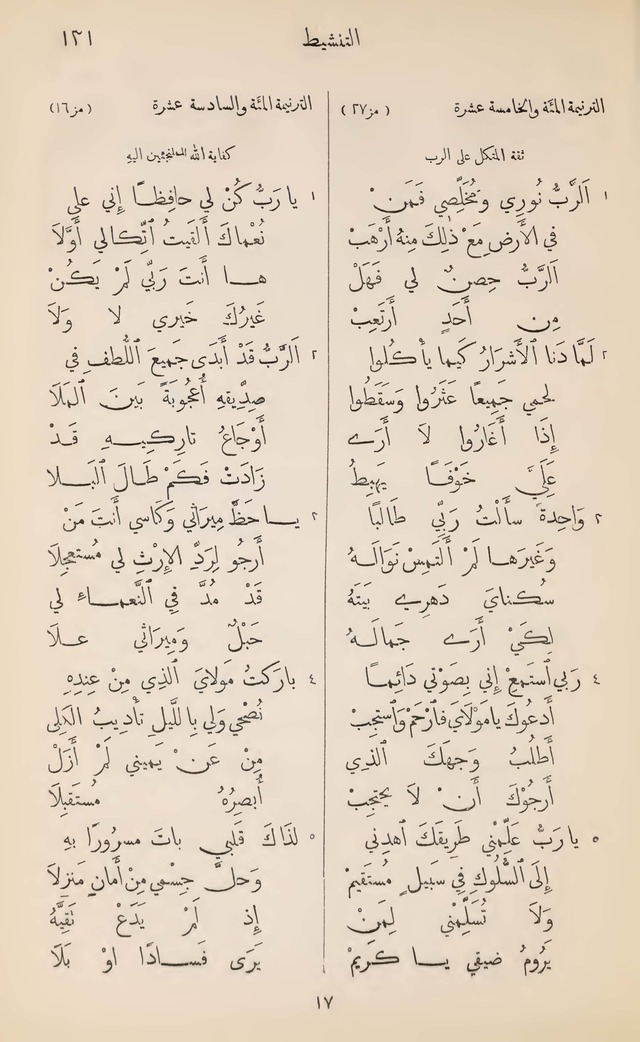 التنشيط
١٢١
الترنيمة المئة والخامسة عشرة (مز٢٧)
ثقة المتكل على الرب
١ اَلرَّبُّ نُورِي وَمُخَلِّصِي فَمَنْ
في الأَرضِ مَعْ ذٰلِكَ مِنهُ أَرْهَبْ
اَلرَّبُّ حِصنٌ لي فَهَلْ
مِن أَحَدٍ أَرتَعِبْ
٢ لَمَّا دَنا الأَشرَارُ كَيما يأكُلوا
لحمي جَمِيعًا عَثَرُوا وَسَقَطُوا
إِذَا أَغَارُوا لاَ أَرَى
عَلَيَّ خَوْفًا يَهبِطُ
٣ وَاحِدةً سأَلتُ رَبِّي طَالبًا
وَغَيرَها لَمْ أَلتَمِسْ نَوَالَهُ
سُكنايَ دَهرِي بَيتَهُ
لِكَيْ أَرَى جَمالَهُ
٤ رَبي ٱستَمِعْ إِني بِصَوْتي دَائِمًا
أَدعُوكَ يا مَوْلاَيَ فٱرْحَمْ وَٱستَجِبْ
أَطلُبُ وَجهَكَ الَّذي
أَرجُوْكَ أَنْ لاَ يَحتَجِبْ
٥ يا رَبُّ عَلِّمْني طَرِيقَكَ ٱهدِني
إِلَى السُّلُوكِ فِي سَبيلٍ مُستَقيمْ
وَلاَ تُسَلِّمْني لِمَنْ
يَرُومُ ضيقي يا كريمْ
الترنيمة المئة والسادسة عشرة (مز١٦)
كفاية الله للملتجئين اليه
١ يا رَبُّ كُنْ لي حافِظًا إِني على
نُعْماكَ أَلقَيتُ ٱتِّكالي أَوَّلاَ
ها أَنتَ رَبِّي لَمْ يَكُنْ
غَيرُكَ خَيري لا وَلاَ
٢ اَلرَّبُّ قَدْ أَبدَى جَميعَ اللُّطفِ في
صِدِّيقِهِ أُعْجُوبَةً بَينَ المَلاَ
أَوْجَاعُ تارِكِيهِ قَدْ
زَادَتْ فَكَمْ طَالَ البَلا
٣ يا حَظَّ مِيرَاثي وَكَاسي أَنتَ مَنْ
أَرجُو لِرَدِّ الإِرْثِ لي مُستَعجِلاَ
قَدْ مُدَّ فِي النَّعماءِ لي
حَبْلٌ وَمِيرَاثي علاَ
٤ بارَكتُ مَولايَ ٱلَّذي مِنْ عِندِهِ
نُصْحي وَلي بٱللَّيلِ تأْديبُ الكِلى
مِنْ عَنْ يَميني لَمْ أَزَلْ
أُبصِرُهُ مُستَقبِلاَ
٥ لذَاكَ قَلبي باتَ مسرُورًا بهِ
وَحلَّ جِسْمي مِنْ أَمانٍ مَنزِلاَ
إِذ لَمْ يَدَعْ تَقِيَّهُ
يَرَى فَسادًا اوْ بَلاَ
١٧